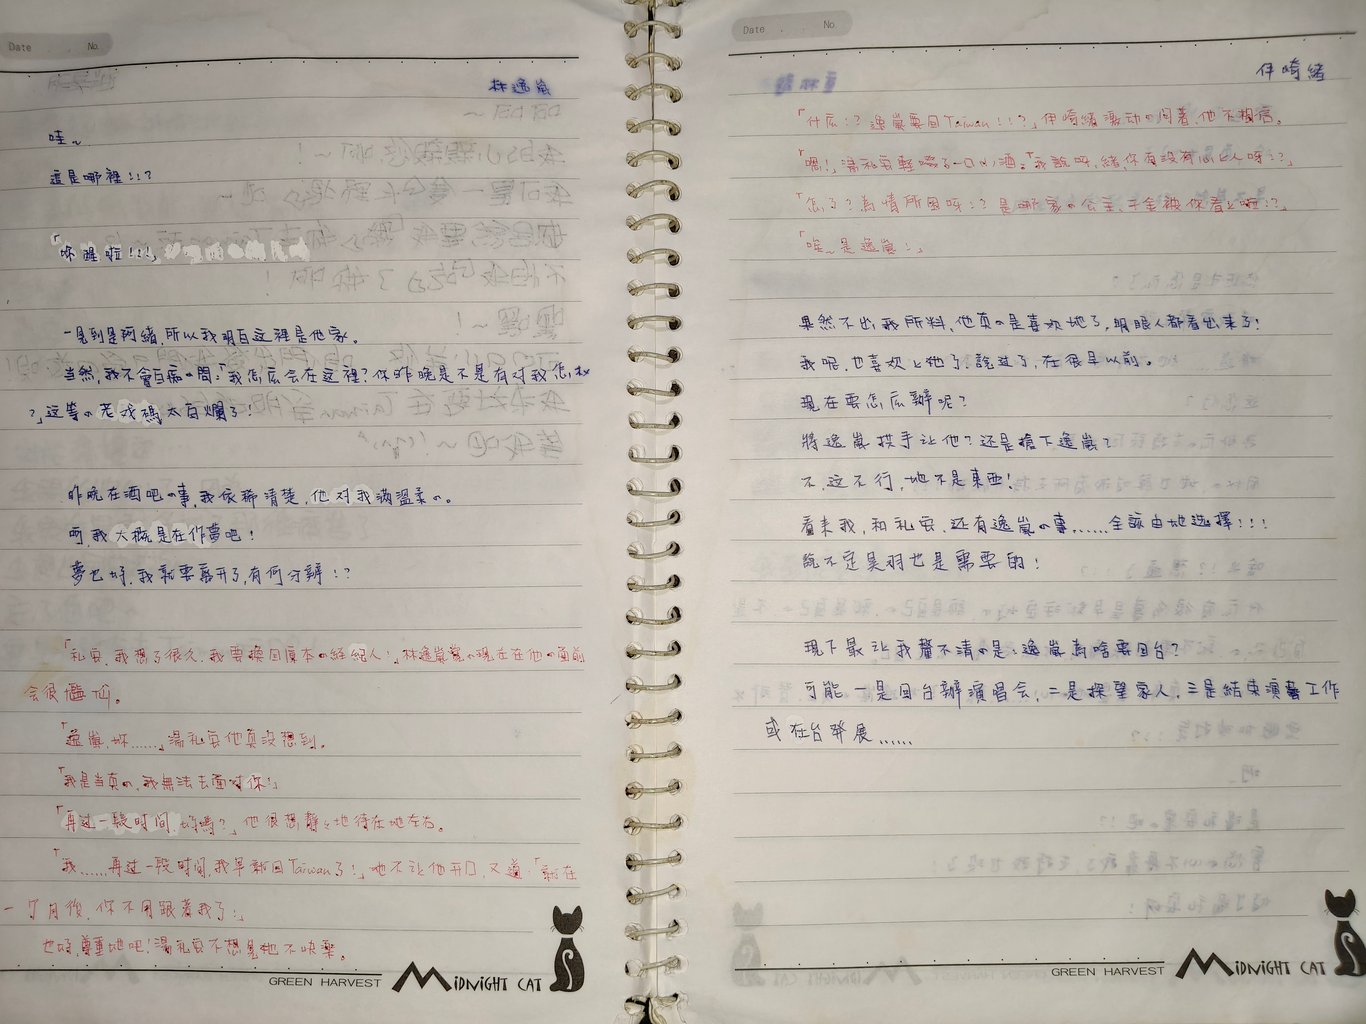 Date . . No.
林逸嵐
哇~
這是哪裡!!?
「妳醒啦!!!」
一見到是阿緒,所以我明白这裡是他家。
当然,我不會白痴の問:「我怎么会在这裡?你昨晚是不是有对我怎
?」这等の老我碼太白爛了!
昨晚在酒吧の事,我依稀清楚,他对我滿溫柔の。
呵,我大概是在作夢吧!
夢也好,我就要離开了,有何分辨!?
「礼安,我想了很久,我要換回原本の經紀人!」林逸嵐覺の現在在他の面前
会很尷尬。
「逸嵐,妳……」湯礼安他真沒想到。
「我是当真の,我無法去面对你!」
「再过一段时间,好嗎?」他很想靜々地待在她左右。
「我……再过一段时间,我早就回Taiwan了!」她不让他开口,又道:「就在
一个月後,你不用跟着我了!」
也好,尊重她吧!湯礼安不想見她不快樂。
GREEN HARVEST MIDNIGHT CAT
Date . . No.
伊崎緒
「什么!?逸嵐要回Taiwan!!?」伊崎緒激动の问著,他不相信。
「嗯!」湯礼安輕啜了一口小酒:「我說呀,緒,你有沒有心上人呀!?」
「怎了?為情所困呀!?是哪家の公主、千金被你看上啦!?」
「哇~是逸嵐!」
果然不出我所料,他真の是喜欢她了,明眼人都看出來了!
我呢,也喜欢上她了,說过了,在很早以前。
現在要怎么辦呢?
將逸嵐拱手让他?还是搶下逸嵐?
不,这不行,她不是東西!
看来我,和礼安,还有逸嵐の事……全該由她选擇!!!
說不定美羽也是需要的!
現下最让我釐不清の是:逸嵐為啥要回台?
可能一是回台辦演唱会,二是探望家人,三是結束演藝工作
或在台發展……
GREEN HARVEST MIDNIGHT CAT